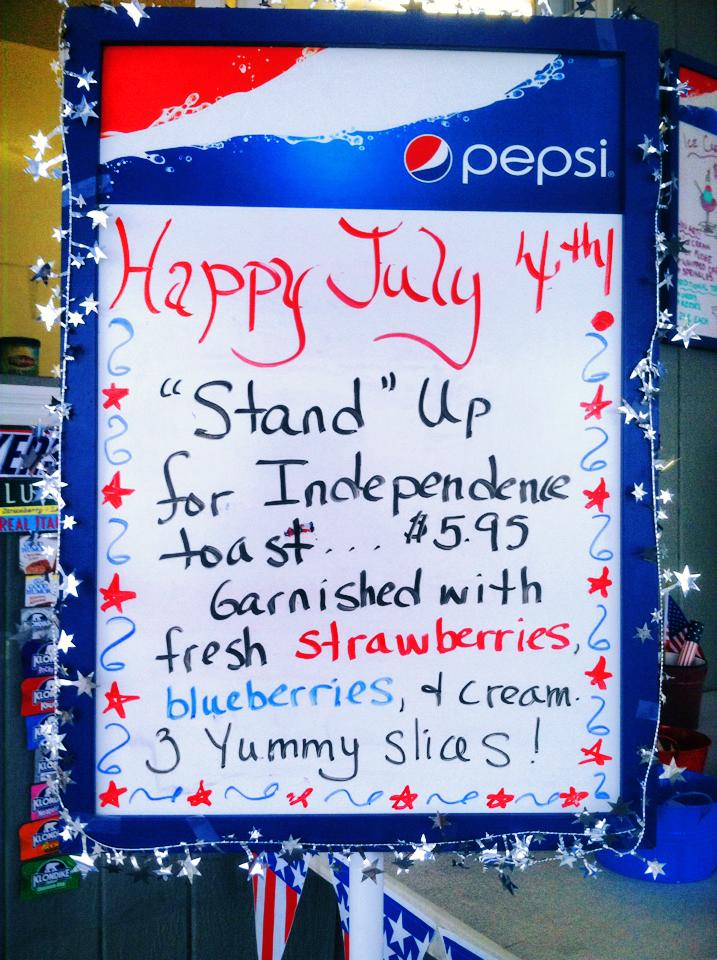 pepsi
Happy July 4th!
"Stand" Up
for Independence
toast.... $5.95
Garnished with
fresh strawberries,
blueberries, & cream.
3 Yummy slices!
KLONDIKE